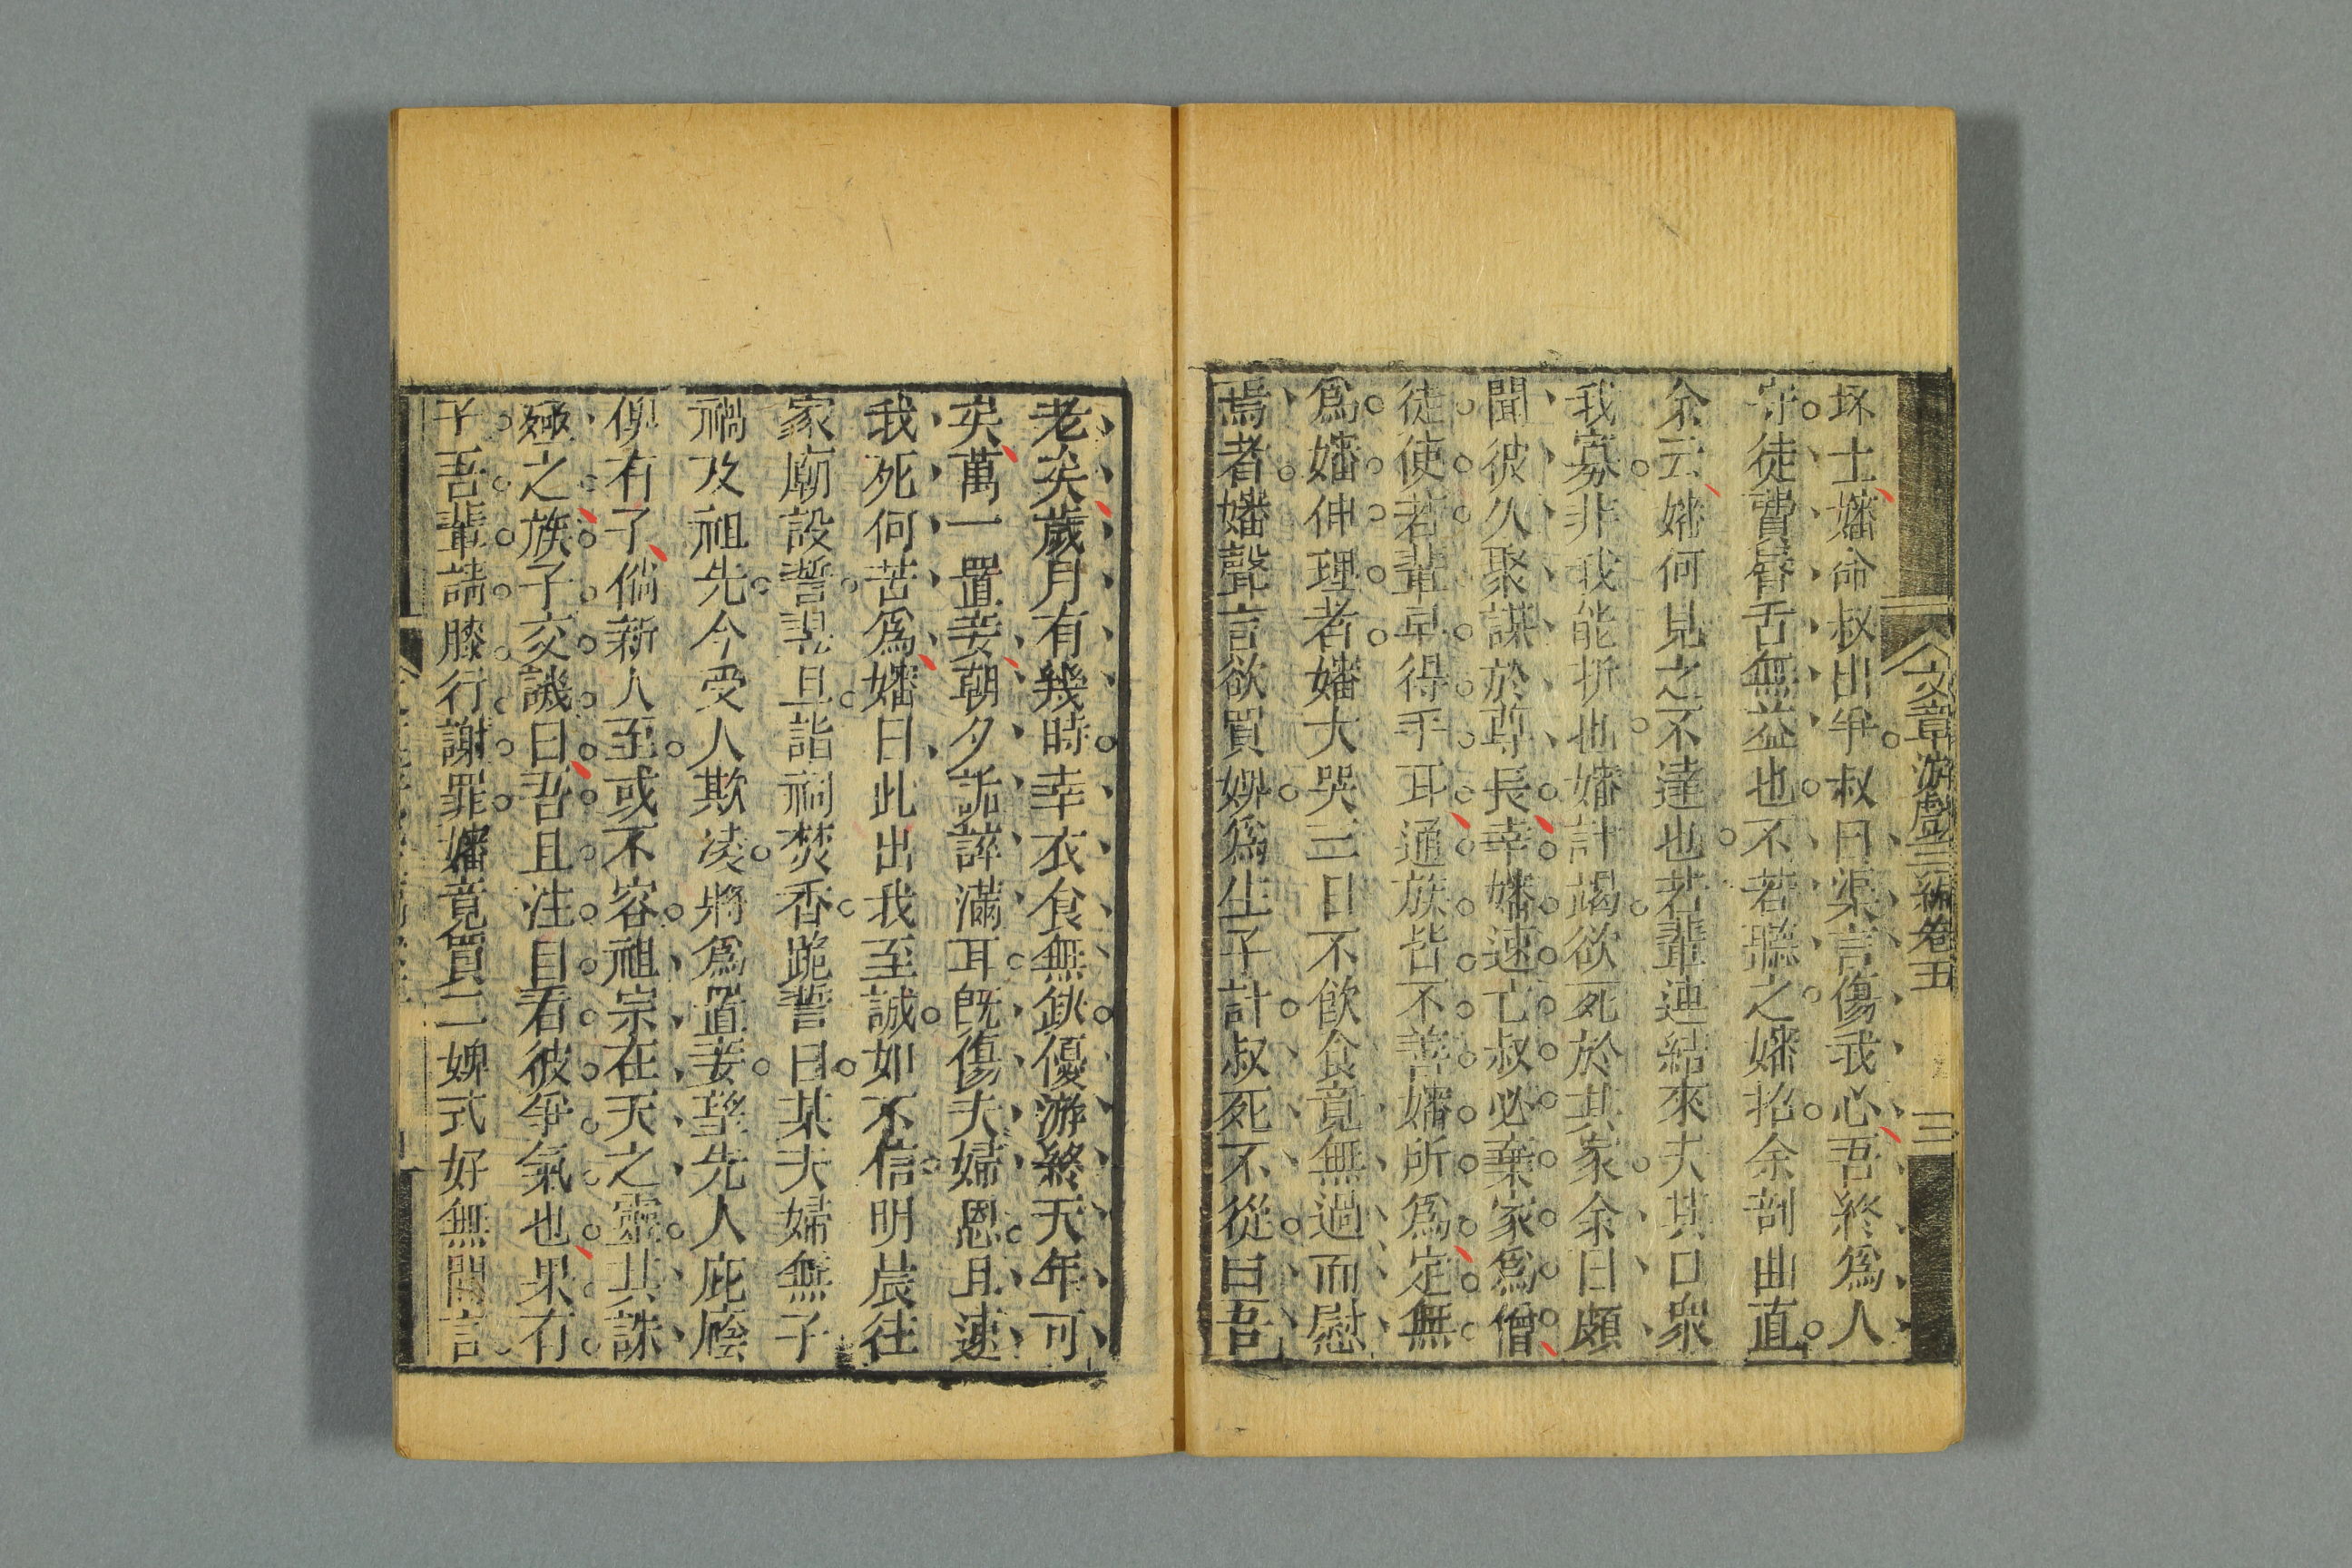 文章游戲三編卷五
三
坏土嬸命叔出爭叔曰渠言傷我心吾終爲人
守徒費脣舌無益也不若聽之嬸招余剖曲直
余云嬸何見之不達也若輩連結來夫其口衆
我寡非我能折也嬸計竭欲死於其家余曰頗
聞彼久聚謀於尊長幸嬸速亡叔必棄家爲僧
徒使若輩早得手耳通族皆不善嬸所爲定無
爲嬸伸理者嬸大哭三日不飲食竟無過而慰
焉者嬸聲言欲買婢爲生子計叔死不從曰吾
老矣歲月有幾時幸衣食無缺優游終天年可
矣萬一置妾朝夕詬誶滿耳旣傷夫婦恩且速
我死何苦爲嬸曰此出我至誠如不信明晨往
家廟設誓詰旦詣祠焚香跪誓曰某夫婦無子
禍及祖先今受人欺凌將爲置妾望先人庇廕
俾有子倘新人至或不容祖宗在天之靈其誅
殛之族子交譏曰吾且注目看彼爭氣也果有
子吾輩請膝行謝罪嬸竟買二婢式好無間言